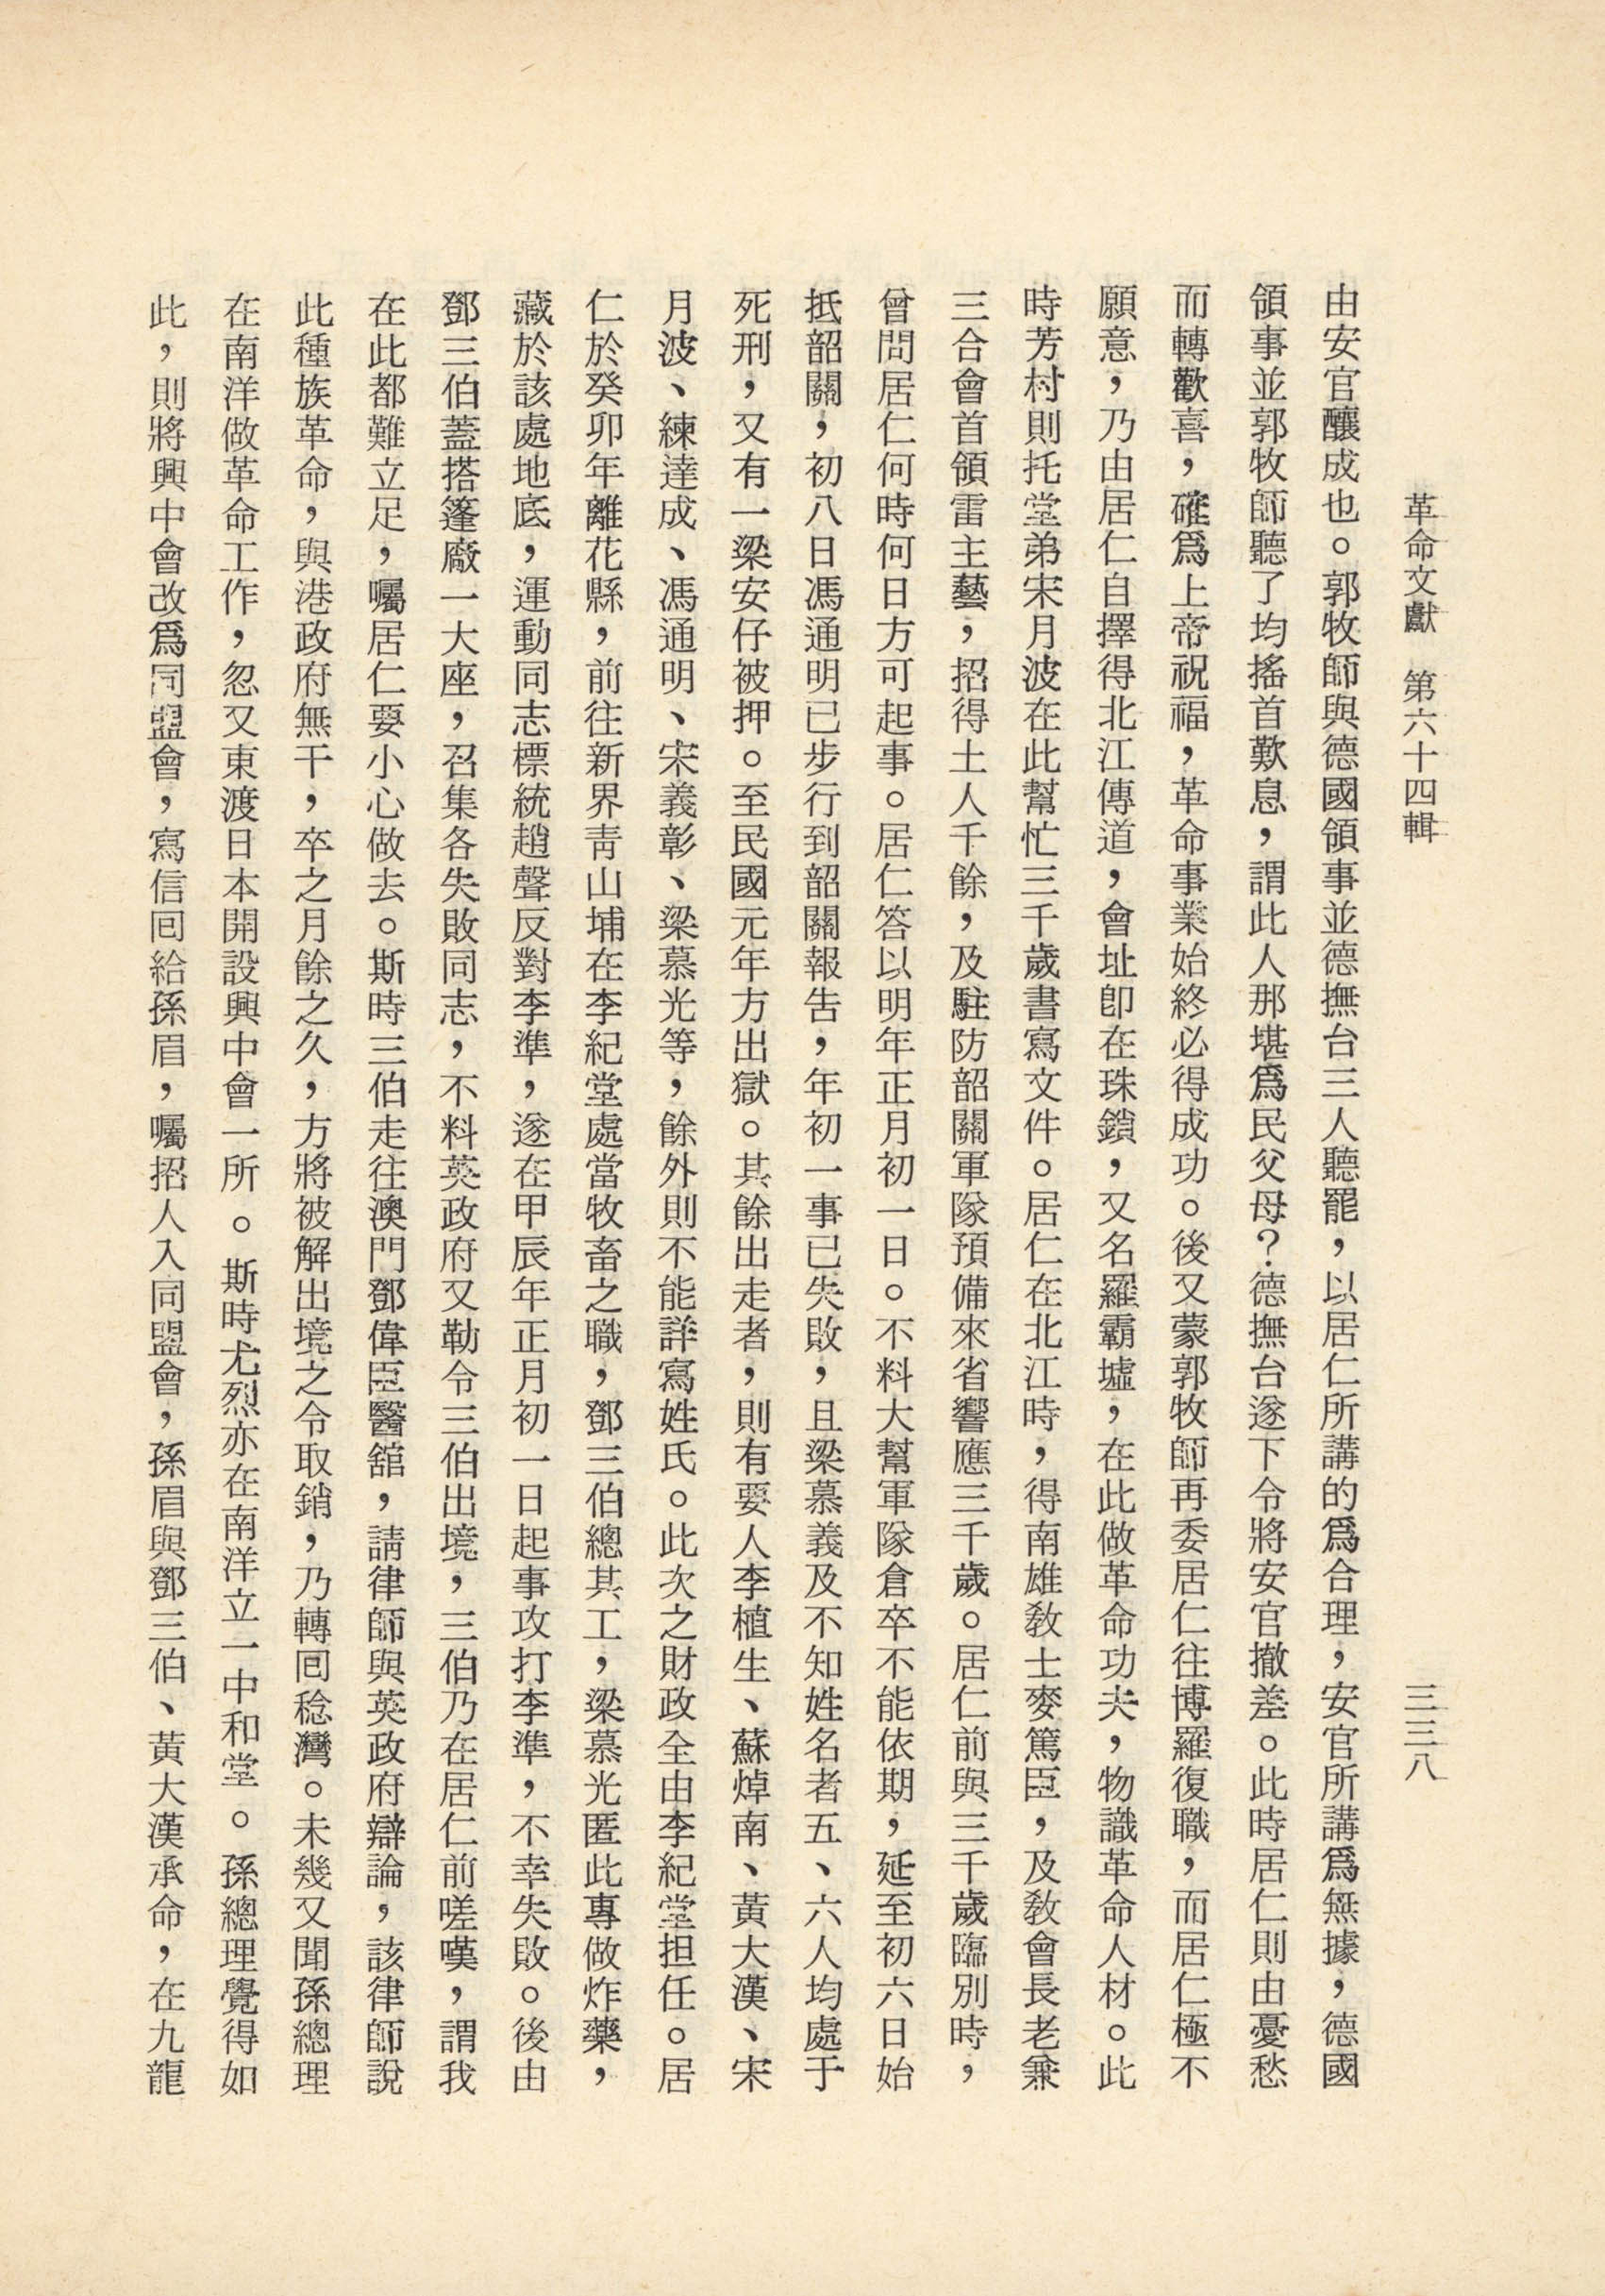 革命文獻　第六十四輯
三三八
由安官釀成也。郭牧師與德國領事並德撫台三人聽罷，以居仁所講的爲合理，安官所講爲無據，德國
領事並郭牧師聽了均搖首歎息，謂此人那堪爲民父母？德撫台遂下令將安官撤差。此時居仁則由憂愁
而轉歡喜，確爲上帝祝福，革命事業始終必得成功。後又蒙郭牧師再委居仁往博羅復職，而居仁極不
願意，乃由居仁自擇得北江傳道，會址卽在珠鎖，又名羅霸墟，在此做革命功夫，物識革命人材。此
時芳村則托堂弟宋月波在此幫忙三千歲書寫文件。居仁在北江時，得南雄敎士麥篤臣，及敎會長老兼
三合會首領雷主藝，招得土人千餘，及駐防韶關軍隊預備來省響應三千歲。居仁前與三千歲臨別時，
曾問居仁何時何日方可起事。居仁答以明年正月初一日。不料大幫軍隊倉卒不能依期，延至初六日始
抵韶關，初八日馮通明已步行到韶關報告，年初一事已失敗，且梁慕義及不知姓名者五、六人均處于
死刑，又有一梁安仔被押。至民國元年方出獄。其餘出走者，則有要人李植生、蘇焯南、黃大漢、宋
月波、練達成、馮通明、宋義彰、梁慕光等，餘外則不能詳寫姓氏。此次之財政全由李紀堂担任。居
仁於癸卯年離花縣，前往新界靑山埔在李紀堂處當牧畜之職，鄧三伯總其工，梁慕光匿此專做炸藥，
藏於該處地底，運動同志標統趙聲反對李準，遂在甲辰年正月初一日起事攻打李準，不幸失敗。後由
鄧三伯蓋搭篷廠一大座，召集各失敗同志，不料英政府又勒令三伯出境，三伯乃在居仁前嗟嘆，謂我
在此都難立足，囑居仁要小心做去。斯時三伯走往澳門鄧偉臣醫舘，請律師與英政府辯論，該律師說
此種族革命，與港政府無干，卒之月餘之久，方將被解出境之令取銷，乃轉囘稔灣。未幾又聞孫總理
在南洋做革命工作，忽又東渡日本開設興中會一所。斯時尤烈亦在南洋立一中和堂。孫總理覺得如
此，則將興中會改爲同盟會，寫信囘給孫眉，囑招人入同盟會，孫眉與鄧三伯、黃大漢承命，在九龍